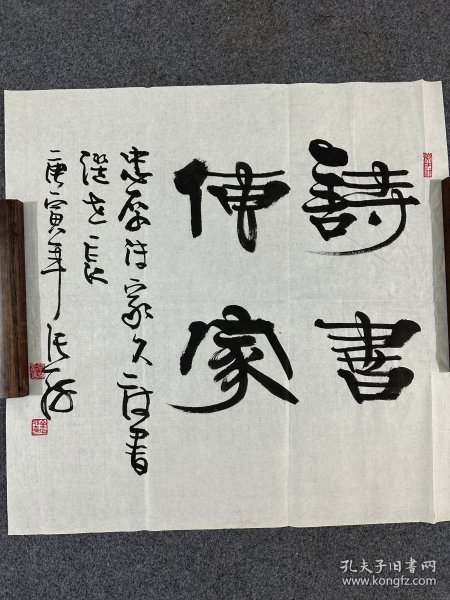 詩書
傳家
忠厚传家久 诗書
继世长
庚寅年
孔夫子旧書网
www.kongfz.com